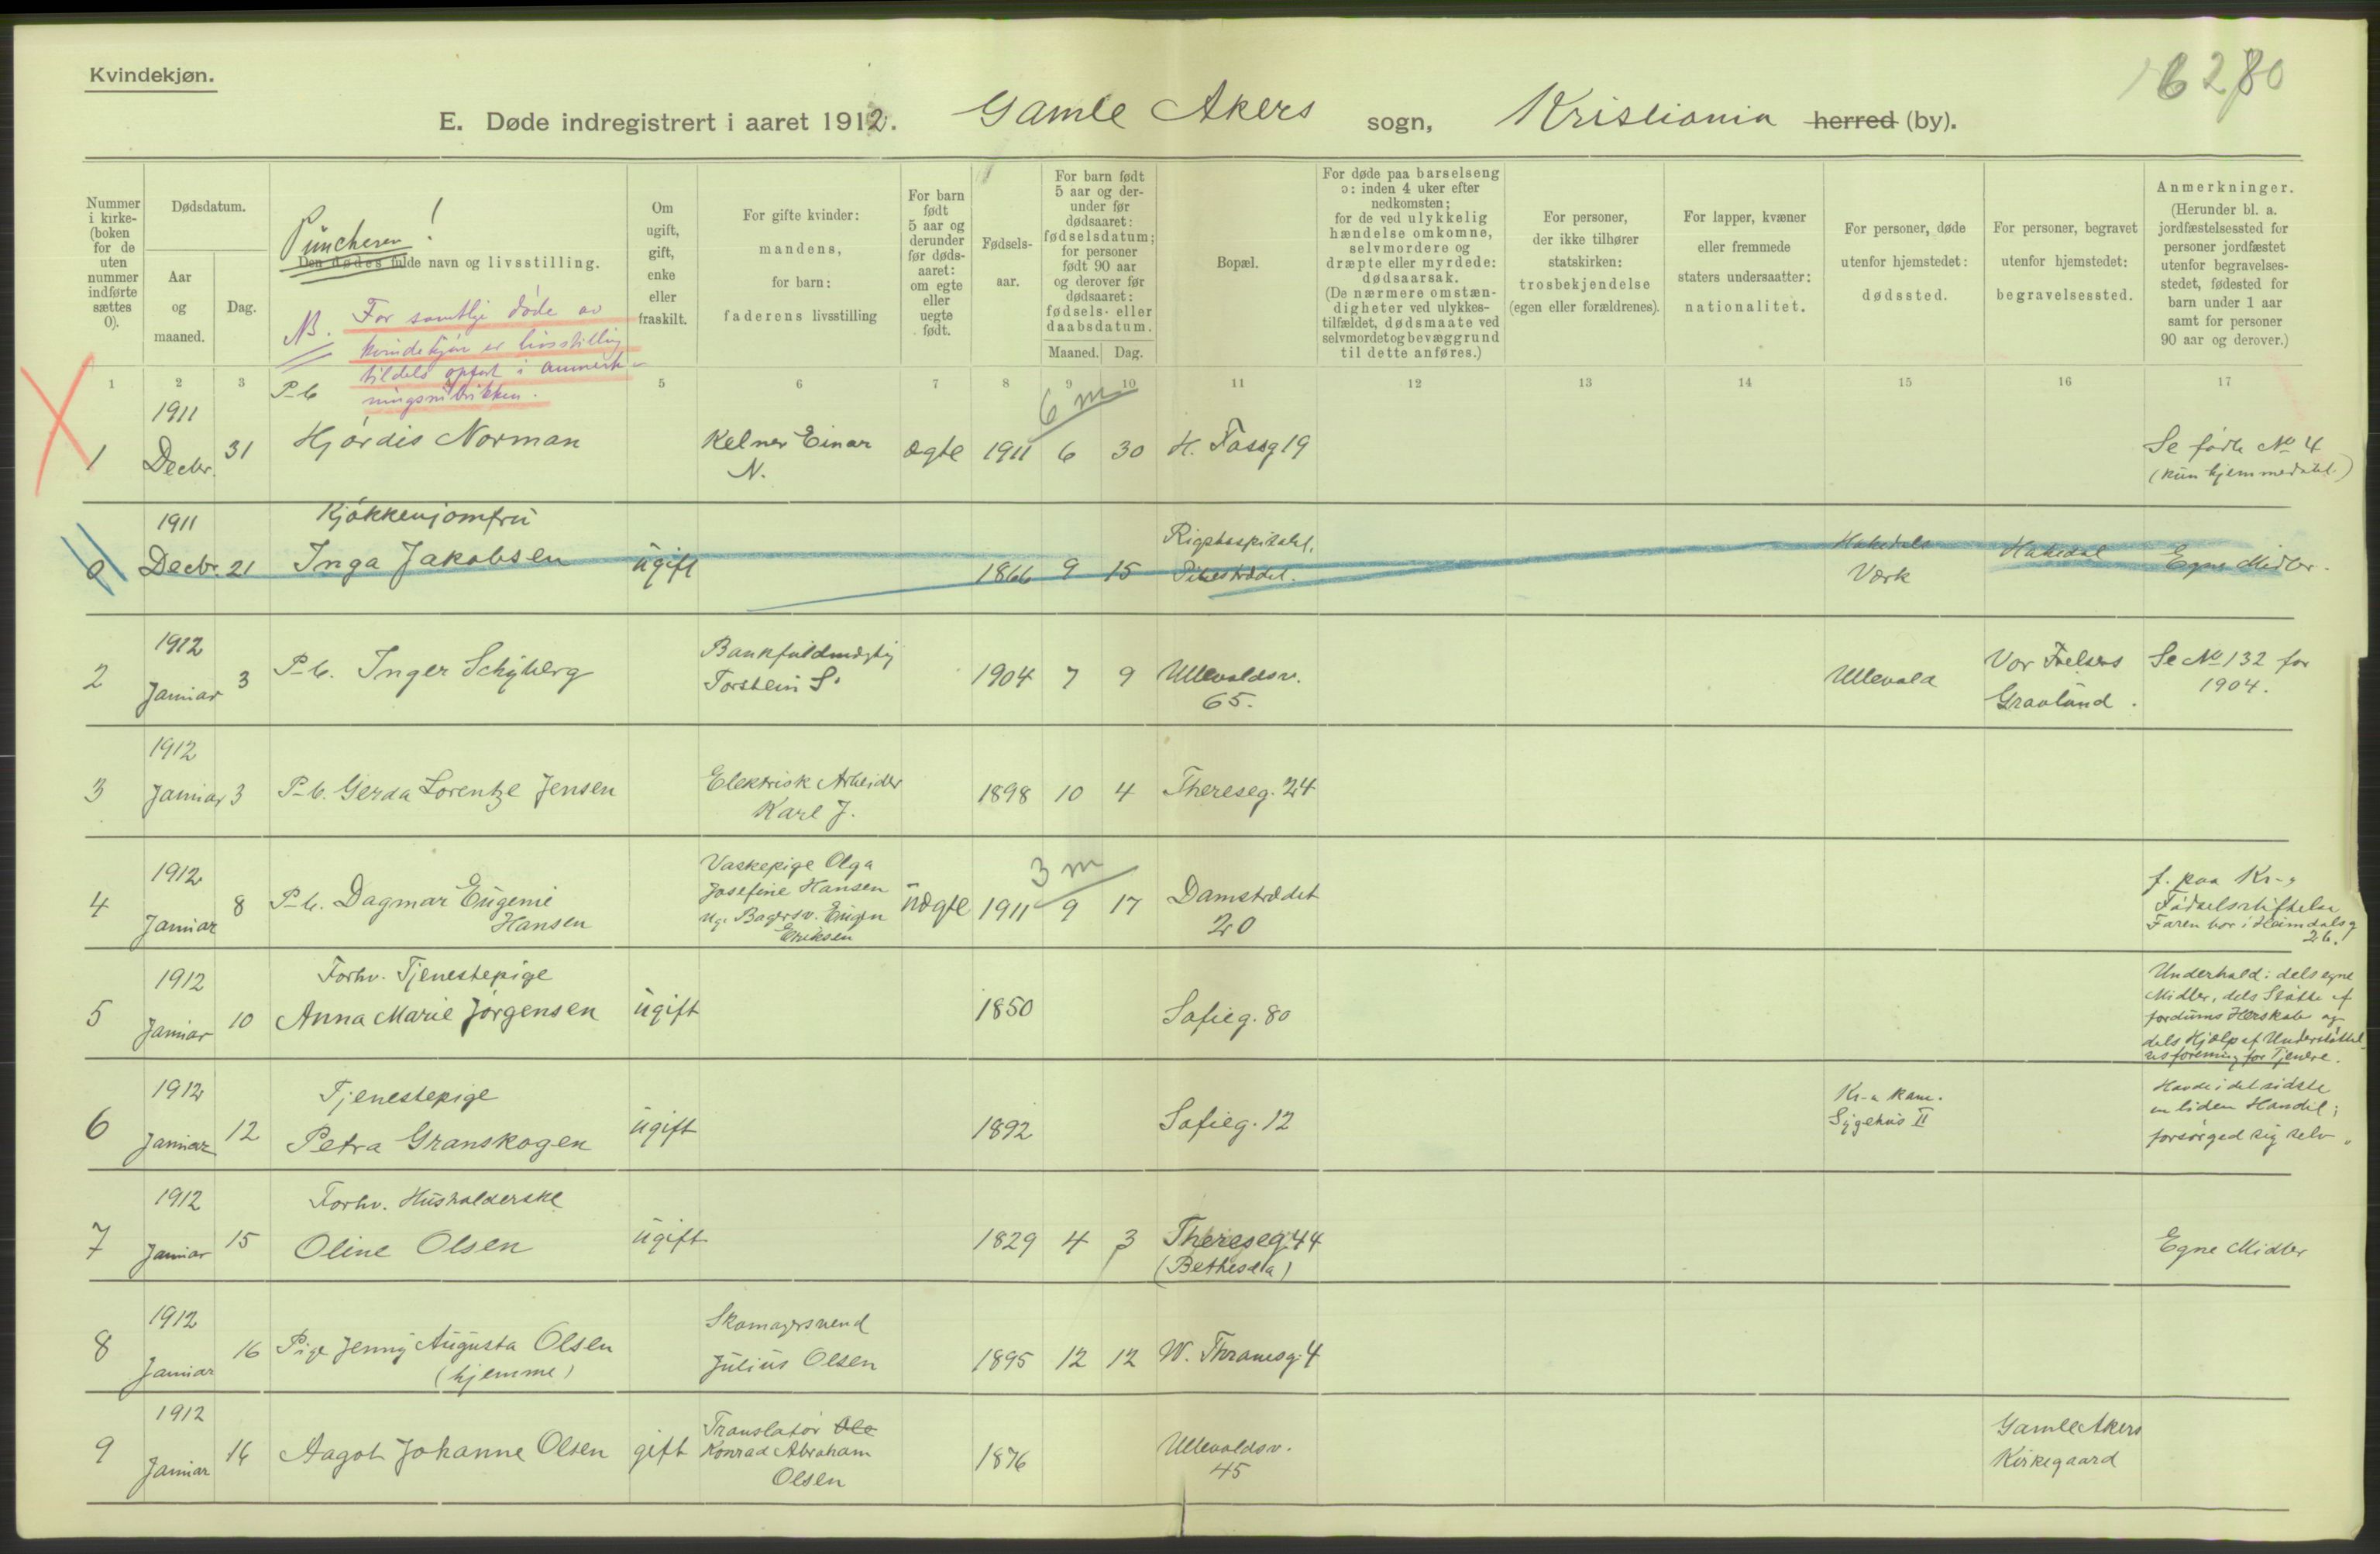 Kvindekjøn.
16280
E. Døde indregistrert i aaret 1912. Gamle Akers sogn, Kristiania herred (by).
Nummer i kirke-(boken for de uten nummer indførte sættes 0).
Dødsdatum.
Aar og maaned.
Dag.
Puncheren!
Den dødes fulde navn og livsstilling.
NB. For samtlige døde av
kvindekjøn er livsstilling
tildels opført i anmerk-
ningsrubrikken.
Om ugift, gift, enke eller fraskilt.
For gifte kvinder: mandens, for barn: faderens livsstilling
For barn født 5 aar og derunder før døds-aaret: om egte eller uegte født.
Fødsels-aar.
For barn født 5 aar og der-under før dødsaaret: fødselsdatum; for personer født 90 aar og derover før dødsaaret: fødsels- eller daabsdatum.
Maaned. Dag.
Bopæl.
For døde paa barselseng ɔ: inden 4 uker efter nedkomsten; for de ved ulykkelig hændelse omkomne, selvmordere og dræpte eller myrdede: dødsaarsak. (De nærmere omstæn-digheter ved ulykkes-tilfældet, dødsmaate ved selvmordet og bevæggrund til dette anføres.)
For personer, der ikke tilhører statskirken: trosbekjendelse (egen eller forældrenes).
For lapper, kvæner eller fremmede staters undersaatter: nationalitet.
For personer, døde utenfor hjemstedet: dødssted.
For personer, begravet utenfor hjemstedet: begravelsessted.
Anmerkninger. (Herunder bl. a. jordfæstelsessted for personer jordfæstet utenfor begravelses-stedet, fødested for barn under 1 aar samt for personer 90 aar og derover.)
1 2 3 5 6 7 8 9 10 11 12 13 14 15 16 17
1 1911 Decbr. 31 P-b. Hjørdis Norman Kelner Einar N. ægte 1911 6 30 6 m H. Tassg 19 Se fødte No 4 (kun hjemmedøbt.)
0 1911 Decbr. 21 Kjøkkenjomfru Inga Jakobsen ugift 1866 9 15 Rigshospitalet. Pilestrædet. Hakedals Værk Hakedal Egne Midler.
2 1912 Januar 3 P-b. Inger Schyberg Bankfuldmægtig Torstein S. 1904 7 9 Ullevoldsv. 65. Ullevold Vor Frelsers Gravlund. Se No 132 for 1904.
3 1912 Januar 3 P-b. Gerda Lorentze Jensen Elektrisk Arbeider Karl J. 1898 10 4 Thereseg. 24
4 1912 Januar 8 P-b. Dagmar Eugenie Hansen Vaskepige Olga Josefine Hansen Ug. Bagersv. Eugen Eriksen uægte 1911 9 17 3 m Damstrædet 20 f. paa Kr-a Fødselsstiftelse Faren bor i Heimdalsg 26.
5 1912 Januar 10 Forhv. Tjenestepige Anna Marie Jørgensen ugift 1850 Sofieg. 80 Underhold: dels egne Midler, dels Støtte af fordums Herskab og dels Hjælp af Understøttel-sesforening for Tjenere.
6 1912 Januar 12 Tjenestepige Petra Granskogen ugift 1892 Sofieg. 12 Kr-a kom. Sygehus II Havde i det sidste en liden Handel; forsørged sig selv.
7 1912 Januar 15 Forhv. Husholderske Oline Olsen ugift 1829 4 3 Thereseg. 44 (Bethesda) Egne Midler
8 1912 Januar 16 Pige Jenny Augusta Olsen (hjemme) Skomagersvend Julius Olsen 1895 12 12 W. Thranesg. 4
9 1912 Januar 16 Aagot Johanne Olsen gift Translatør Ole Konrad Abraham Olsen 1876 Ullevoldsv. 45 Gamle Akers Kirkegaard